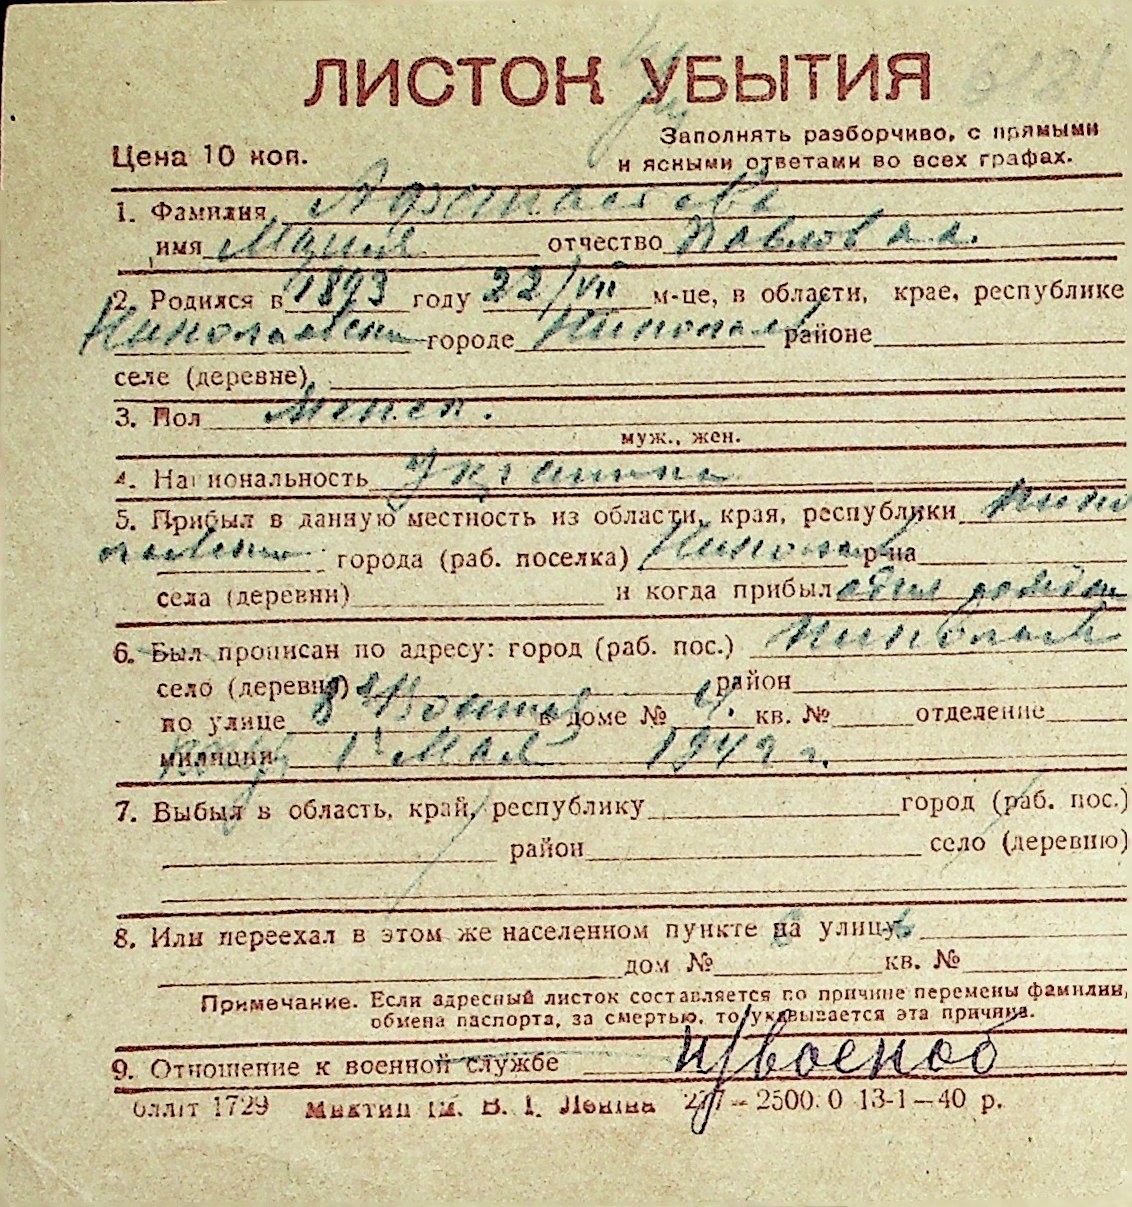 ЛИСТОК УБЫТИЯ
Заполнять разборчиво, с прямыми
Цена 10 коп.
и ясными ответами во всех графах.
1. Фамилия
имя Мария отчество Павловна.
2. Родился в 1893 году 22/VII м-це, в области, крае, республике
Николаевск городе Николаев районе
селе (деревне)
3. Пол Женск.
муж., жен.
4. Национальность Украинка
5. Прибыл в данную местность из области, края, республики Нико
лаевск города (раб. поселка) Николаев р-на
села (деревни) и когда прибыл
6. Был прописан по адресу: город (раб. пос.) Николаев
село (деревня) район
по улице 8 Воен в доме № 4. кв. № отделение
милиции 1 Мая 1942 г.
7. Выбыл в область, край, республику город (раб. пос.)
район село (деревню)
8. Или переехал в этом же населенном пункте на улицу
дом № кв. №
Примечание. Если адресный листок составляется по причине перемены фамилии,
обмена паспорта, за смертью, то указывается эта причина.
9. Отношение к военной службе н/военоб
1729 В. І. Леніна 2500.0 13-1—40 р.